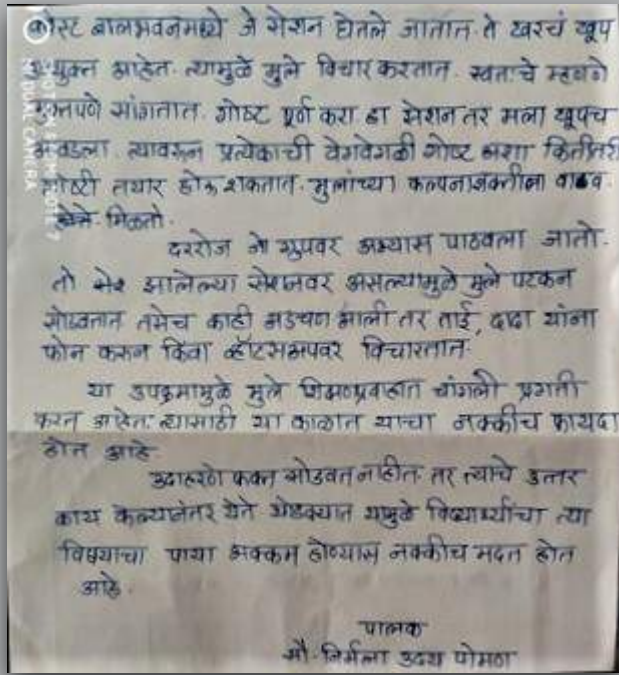 पोस्ट बालभवनमध्ये जे सेशन घेतले जातात. ते खरचं खूप
उपयुक्त आहेत. त्यामुळे मुले विचार करतात. स्वतःचे म्हणणे
मुक्तपणे सांगतात. गोष्ट पूर्ण करा हा सेशन तर मला खूपच
आवडला. त्यावरून प्रत्येकाची वेगवेगळी गोष्ट अशा कितीतरी
गोष्टी तयार होऊ शकतात. मुलांच्या कल्पनाशक्तीला वाव
मिळतो.
दररोज जो ग्रुपवर अभ्यास पाठवला जातो.
तो झालेल्या सेशनवर असल्यामुळे मुले पटकन
सोडवतात तसेच काही अडचण आली तर ताई, दादा यांना
फोन करून किंवा व्हॉटसअपवर विचारतात.
या उपक्रमामुळे मुले शिक्षणप्रवाहात चांगली प्रगती
करत आहेत. त्यासाठी या काळात याचा नक्कीच फायदा
होत आहे.
उदाहरणे फक्त सोडवत नाहीत. तर त्याचे उत्तर
काय केल्यानंतर येते थोडक्यात यामुळे विद्यार्थ्यांचा त्या
विषयाचा पाया भक्कम होण्यास नक्कीच मदत होत
आहे.
पालक
सौ. निर्मला उदय पोमण
DUAL CAMERA